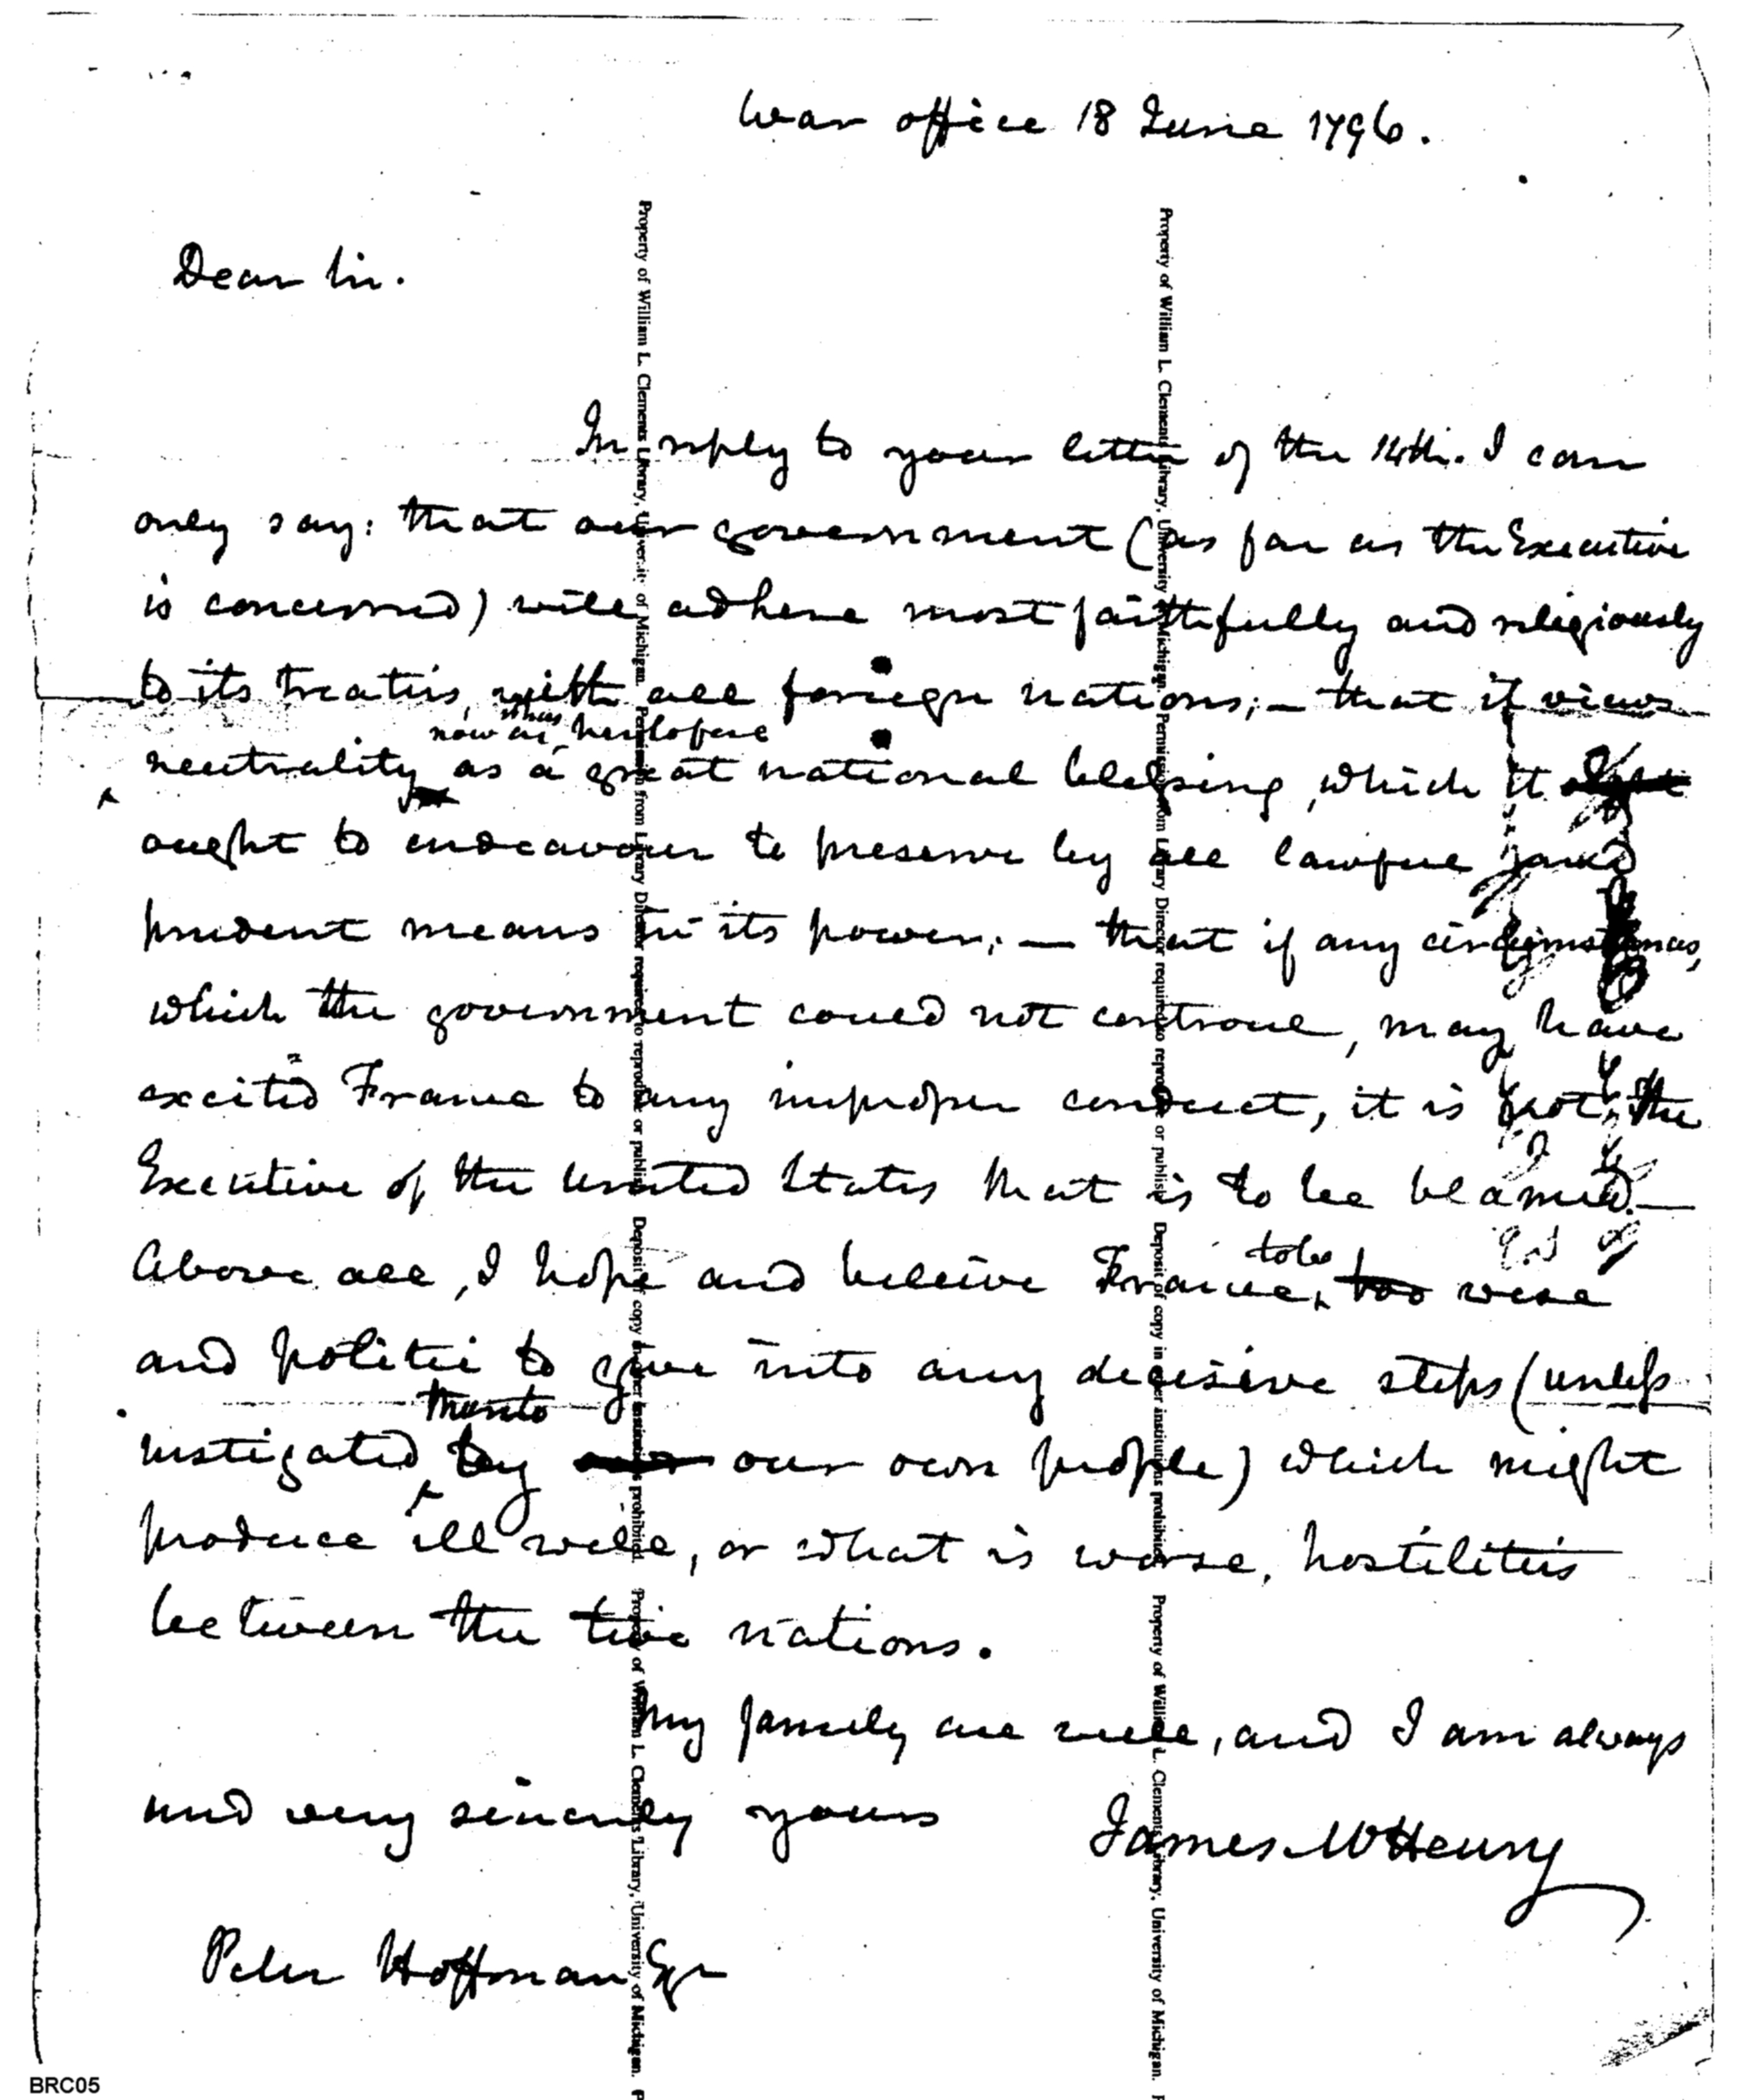 War office 18 June 1796.
Dear Sir.
In reply to your letter of the 14th. I can
only say: that our government (as far as the Executive
is concerned) will adhere most faithfully and religiously
to its treaties, with all foreign nations; — that it views
now as heretofore
neutrality as a great national blessing, which it
ought to endeavour to preserve by all lawful and
prudent means in its power; — that if any circumstances,
which the government could not controul, may have
excited France to any improper conduct, it is not the
Executive of the United States that is to be blamed. —
Above all, I hope and believe France, to be too wise
and politic to give into any decisive steps (unless
thereto
instigated by our own people) which might
produce ill will, or what is worse, hostilities
between the two nations.
My family are well, and I am always
and very sincerely yours
James McHenry
Peter Hoffman Esqr
Property of William L. Clements Library, University of Michigan. Permission from Library Director required to reproduce or publish. Deposit of copy in other institutions prohibited. Property of William L. Clements Library, University of Michigan.
Property of William L. Clements Library, University of Michigan. Permission from Library Director required to reproduce or publish. Deposit of copy in other institutions prohibited. Property of William L. Clements Library, University of Michigan.
BRC05